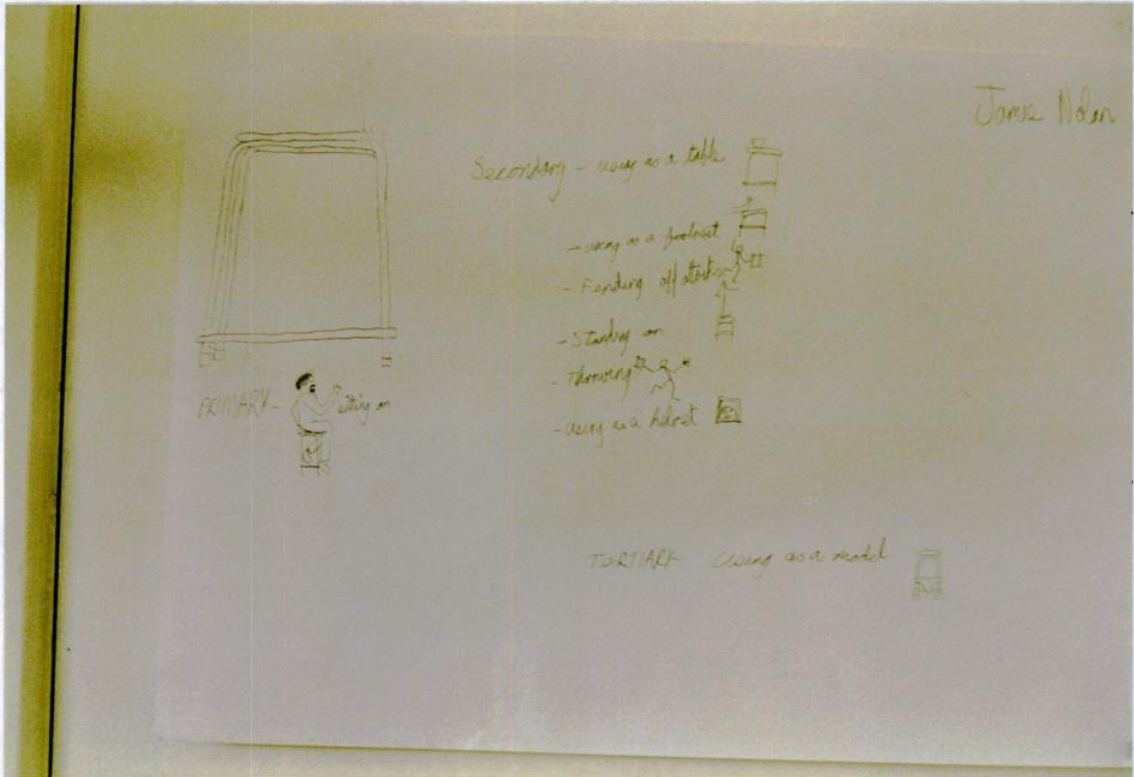 Jamie Nolan
Secondary - using as a table
- using as a footrest
- Fending off attackers
- Standing on
- Throwing
- Using as a helmet
PRIMARY - sitting on
TERTIARY Using as a model